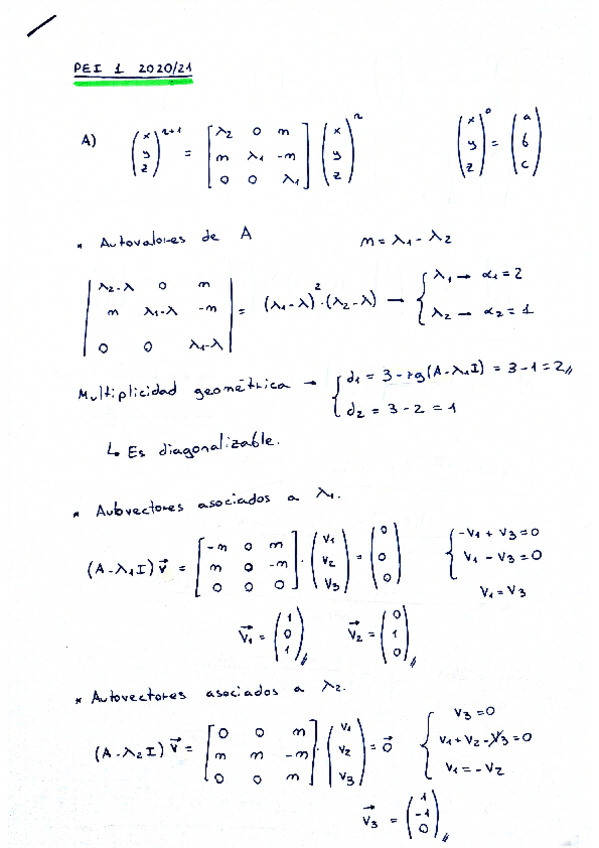 PEI 1 2020/21
A) (x y z)^{n+1} = [λ2 0 m; m λ1 -m; 0 0 λ1] (x y z)^n   (x y z)^0 = (a b c)
* Autovalores de A   m = λ1 - λ2
|λ2-λ 0 m; m λ1-λ -m; 0 0 λ1-λ| = (λ1-λ)^2 · (λ2-λ) → { λ1 → α1 = 2; λ2 → α2 = 1
Multiplicidad geométrica → { d1 = 3 - rg(A-λ1I) = 3-1 = 2//; d2 = 3-2 = 1
↳ Es diagonalizable.
* Autovectores asociados a λ1.
(A-λ1I) v⃗ = [-m 0 m; m 0 -m; 0 0 0] · (v1 v2 v3) = (0 0 0)   { -v1 + v3 = 0; v1 - v3 = 0
v1 = v3
v⃗1 = (1 0 1)//   v⃗2 = (0 1 0)//
* Autovectores asociados a λ2.
(A-λ2I) v⃗ = [0 0 m; m m -m; 0 0 m] · (v1 v2 v3) = 0⃗   { v3 = 0; v1 + v2 - v3 = 0; v1 = -v2
v⃗3 = (1 -1 0)//